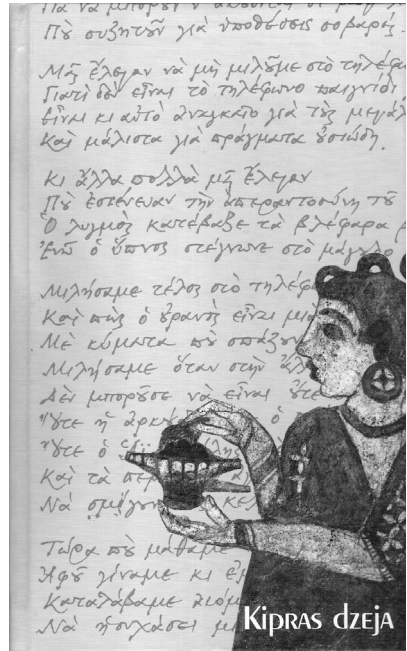 Γιὰ νὰ μποροῦν ν' ἀκοῦνε
Ποὺ συζητοῦν γιὰ ὑποθέσεις σοβαρές.
Μᾶς ἔλεγαν νὰ μὴ μιλοῦμε στὸ τηλέφω
Γιατὶ δὲν εἶναι τὸ τηλέφωνο παιγνίδι
Εἶναι κι αὐτὸ ἀναγκαῖο γιὰ τοὺς μεγάλ
Καὶ μάλιστα γιὰ πράγματα οὐσιώδη.
Κι ἄλλα πολλὰ μᾶς ἔλεγαν
Ποὺ ἐστένευαν τὴν ἀπεραντοσύνη τοῦ
Ὁ λυγμὸς κατέβαζε τὰ βλέφαρα
Ἐνῶ ὁ ὕπνος στέγνωνε στὸ μάγουλο
Μιλήσαμε τέλος στὸ τηλέφω
Καὶ πὼς ὁ οὐρανὸς εἶναι μια
Μὲ κύματα ποὺ σπάζουν
Μιλήσαμε ὅταν στὴν ἄλλ
Δὲν μποροῦσε νὰ εἶναι οὔτε
Οὔτε ἡ ὁ
Οὔτε ὁ
Καὶ τὰ περ
Νὰ σμίγουν κελ
Τώρα ποὺ μάθαμε
Ἀφοῦ γίναμε κι ἐ
Καταλάβαμε
Νὰ ἡσυχάσει μι
Kipras dzeja